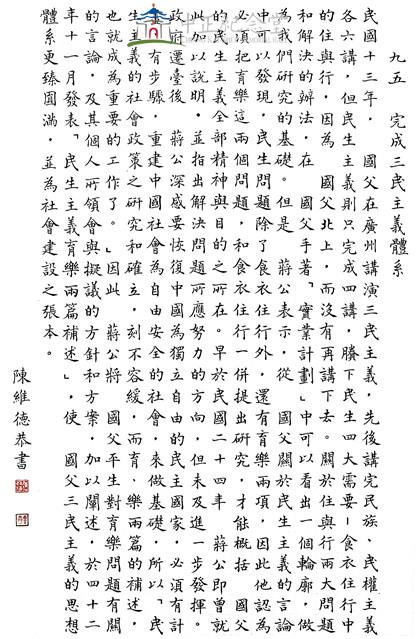 九五 完成三民主義體系
民國十三年， 國父在廣州講演三民主義，先後講完民族、民權主義
各六講，但民生主義則只完成四講，賸下民生四大需要－食衣住行中
的住與行，因為 國父北上，而沒有再講下去。關於住與行兩大問題
和解決的辦法，在 國父手著「實業計劃」中可以看出一個輪廓，做
為我們研究的基礎。但是 蔣公表示，從 國父關於民生主義的言論
可以發現，民生問題除了食衣住行外，還有育樂兩項，因此他認為
必須把育樂這兩個問題，和食衣住行一併提出研究，才能概括 國父
的民生主義全部精神與目的之所在。早於民國二十四年 蔣公即曾就
此加以說明，並指出解決問題所應努力的方向，但未及進一步發揮。
政府遷臺後 蔣公深感要恢復中國為獨立自由的民主國家，必須有計
劃有步驟，重建中國社會為自由安全的社會，來做基礎，所以「民
生主義的社會政策之研究和確立，刻不容緩，而育、樂兩篇的補述，
也就成為重要的工作了。」因此 蔣公將 國父平生對育樂問題有關
的言論，及其個人所領會與擬議的方針和方案，加以闡述，於四十二
年十一月發表「民生主義育樂兩篇補述」，使 國父三民主義的思想
體系更臻圓滿，並為社會建設之張本。
陳維德恭書
中正紀念堂